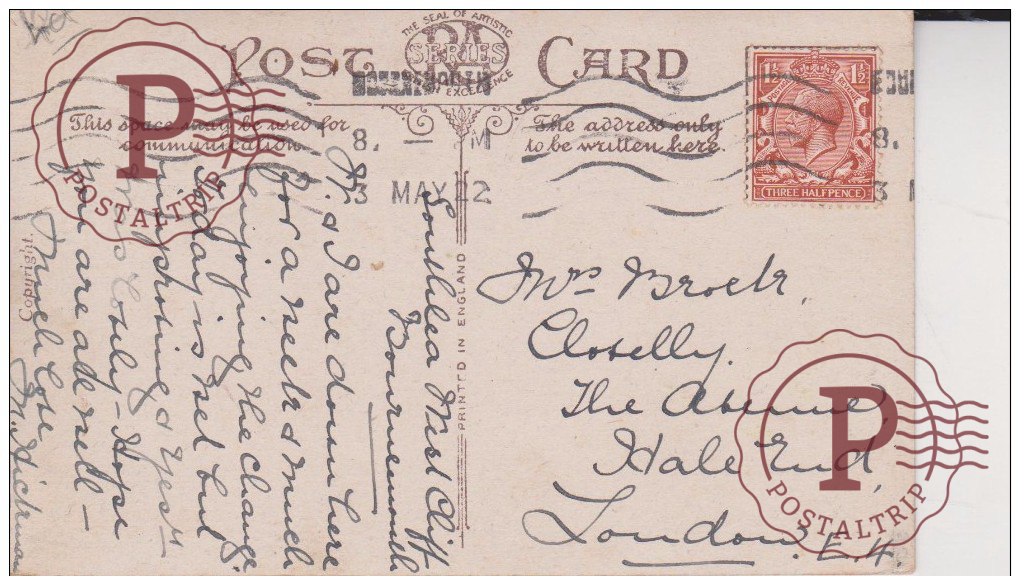 POST CARD
THE SEAL OF ARTISTIC
SERIES
OF EXCELLENCE
BOURNEMOUTH
8. — M
3 MAY 22
1½ 1½
THREE HALFPENCE
This space may be used for
communication.
The address only
to be written here.
Copyright.
PRINTED IN ENGLAND
Southsea West Cliff
Bournemouth
& I are down here
for a week & much
enjoying the change
today is wet but
sunshine & yest
Hope
you are all well —
Much love
M. Hickman
Mrs Brock,
Clovelly.
The Avenue
Hale End
London. E.4.
P
POSTALTRIP
P
POSTALTRIP